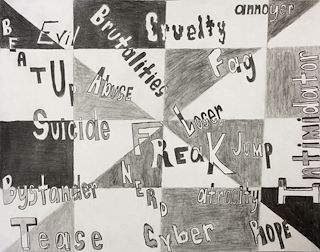 annoyer
Evil
Brutalities
Cruelty
BEAT Up
Abuse
Fag
Intimidator
Loser
Suicide
FReaK
Jump
Bystander
NERD
atrocity
Tease
Cyber